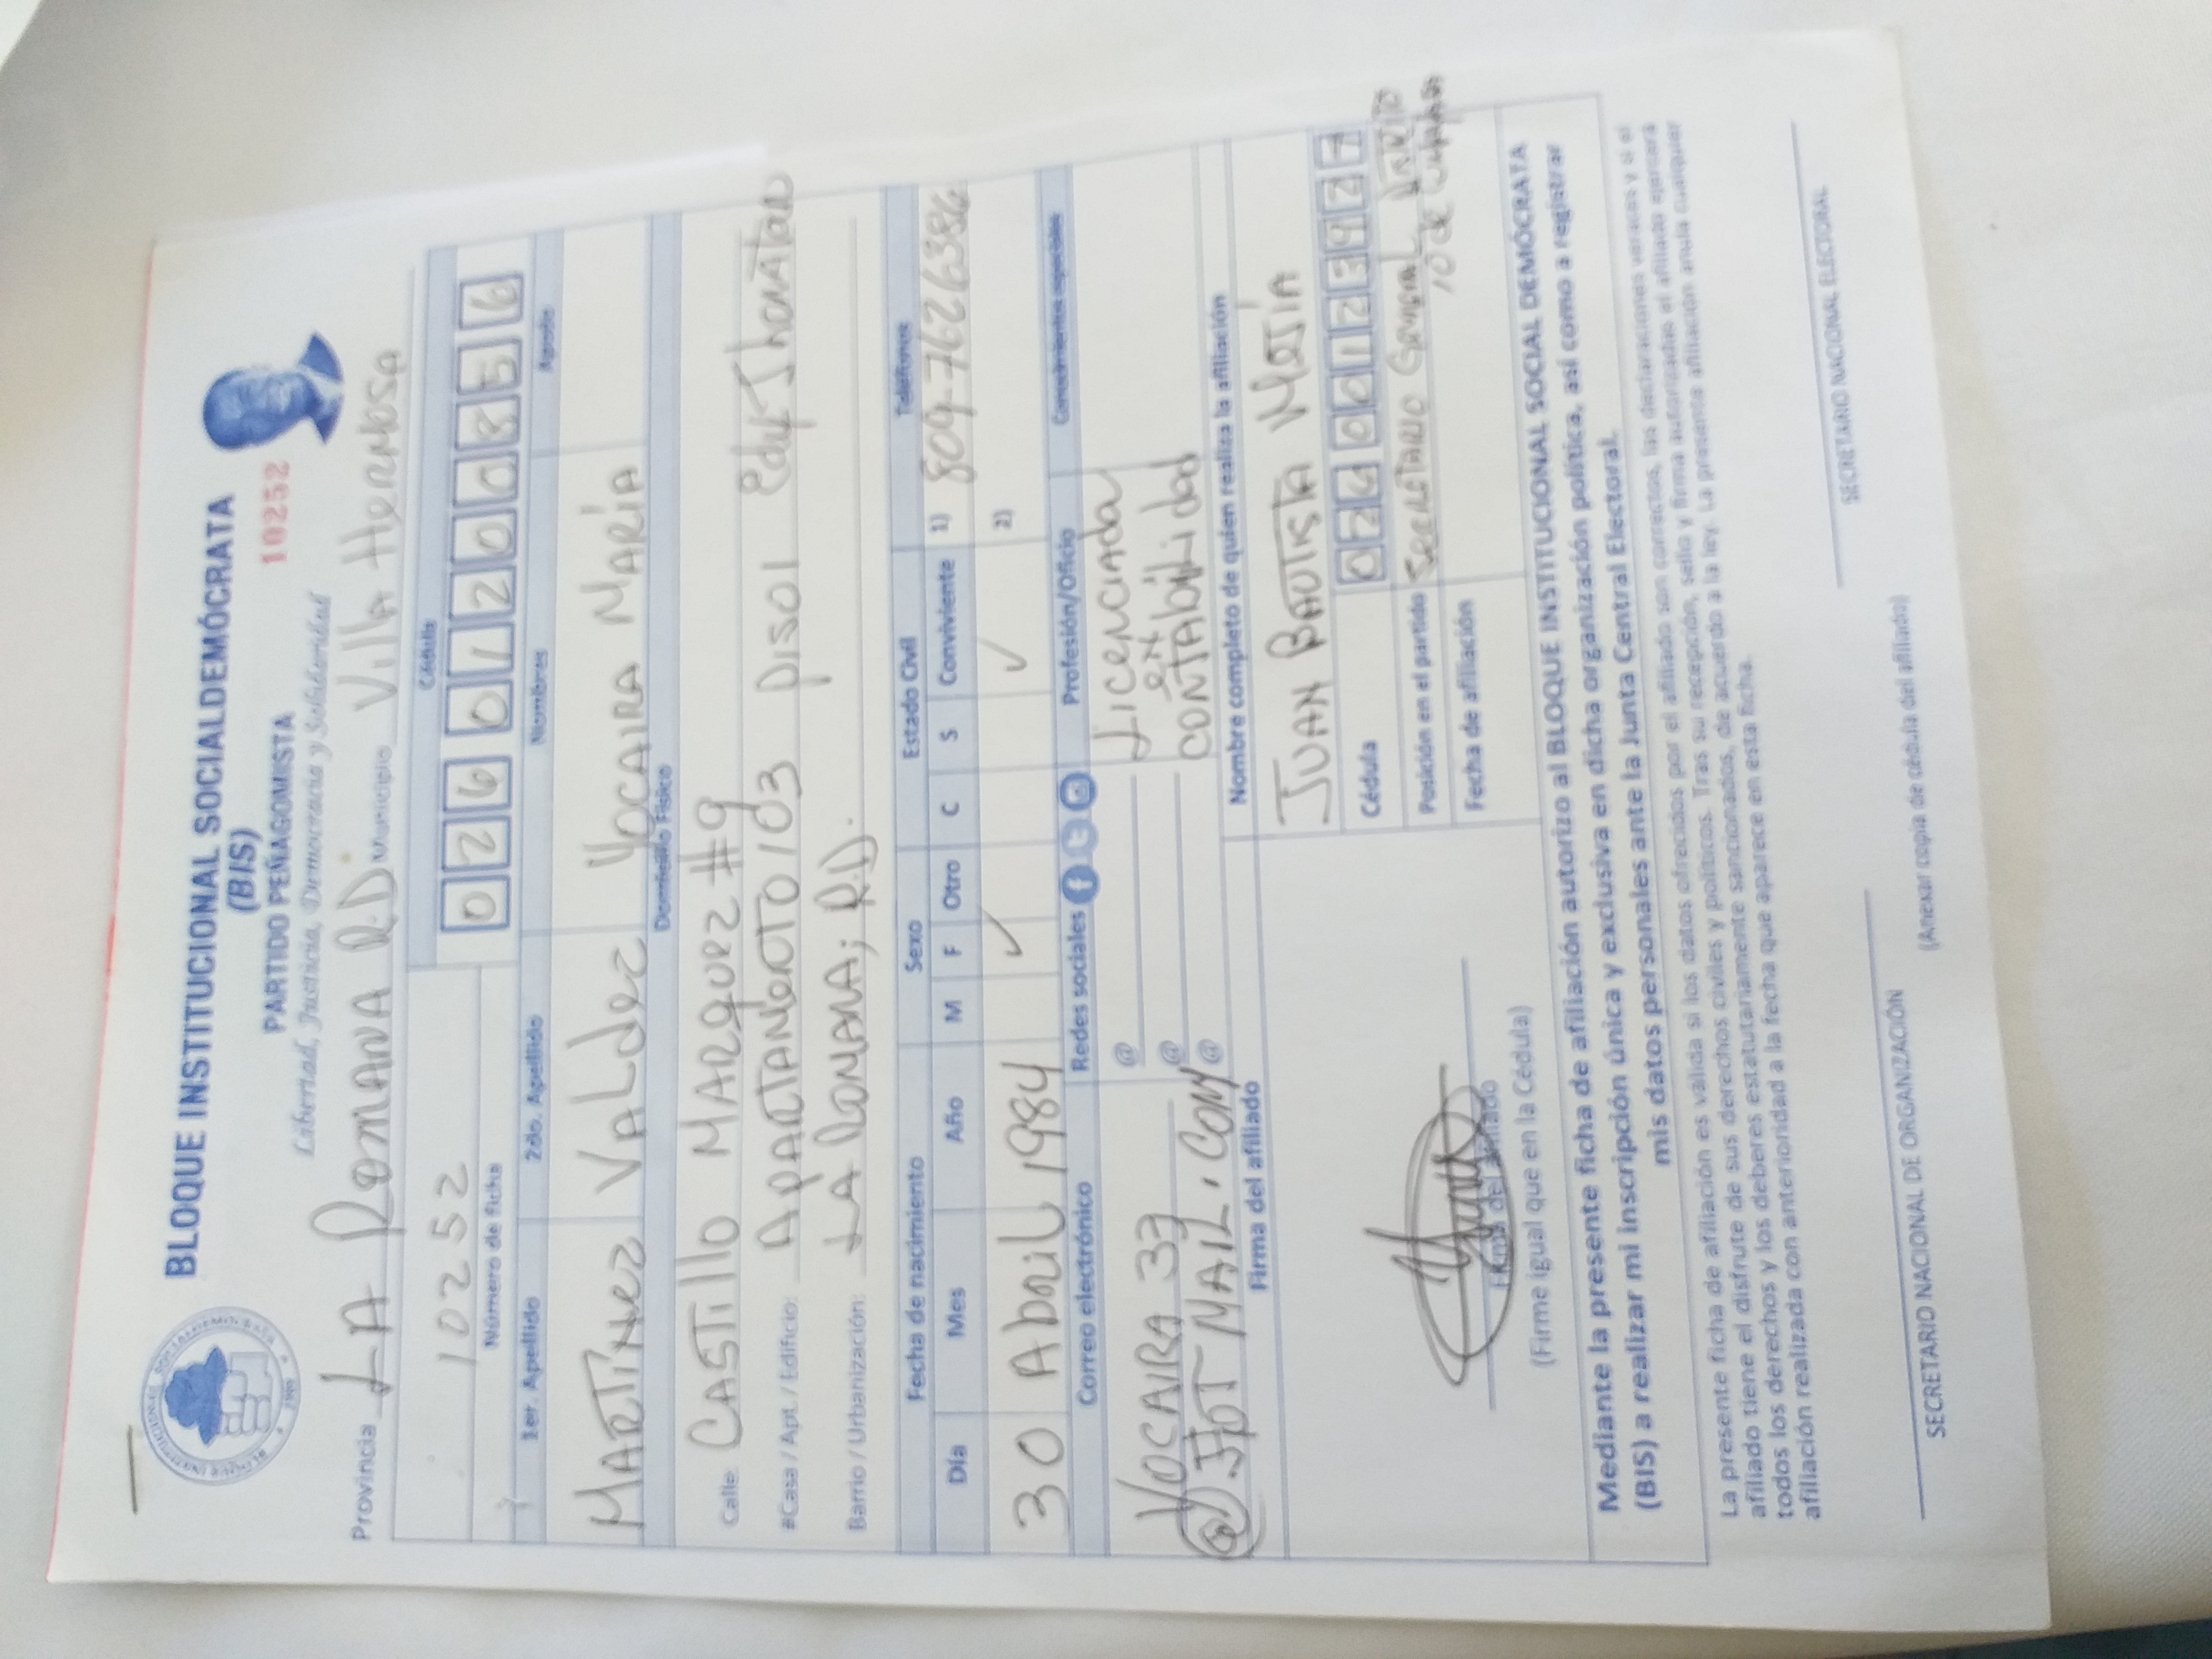 BLOQUE INSTITUCIONAL SOCIALDEMÓCRATA
(BIS)
PARTIDO PEÑAGOMISTA 102252
Libertad, Justicia, Democracia y Solidaridad
Provincia LA Romana R.D Municipio Villa Hermosa
10252
Número de Ficha
Cédula
0 2 6 0 1 2 0 0 8 5 6
1er. Apellido 2do. Apellido Nombres Apodo
MARTÍNez VALdez YOCAIRA MARÍA
Domicilio Físico
Calle: CASTILLO MARQUEZ #9
#Casa / Apt. / Edificio: APARTAMENTO 103 PISO1 Edif Jhonatan
Barrio / Urbanización: LA ROMANA; R.D.
Fecha de nacimiento Sexo Estado Civil Teléfonos
Día Mes Año M F Otro C S Conviviente 1) 809-7626386
30 Abril 1984 ✓ ✓ 2)
Correo electrónico Redes sociales Profesión/Oficio Conocimientos especiales
YOCAIRA 37 @ Licenciada
@HOTMAIL.COM @ en
@ CONTAbilidad
Firma del afiliado Nombre completo de quien realiza la afiliación
JUAN BAUTISTA MEJÍA
Cédula 0 2 6 0 0 1 2 3 9 2 7
Posición en el partido Secretario General
Fecha de afiliación 10 de
Firma del afiliado
(Firme igual que en la Cédula)
Mediante la presente ficha de afiliación autorizo al BLOQUE INSTITUCIONAL SOCIAL DEMÓCRATA
(BIS) a realizar mi inscripción única y exclusiva en dicha organización política, así como a registrar
mis datos personales ante la Junta Central Electoral.
La presente ficha de afiliación es válida si los datos ofrecidos por el afiliado son correctos, las declaraciones veraces y si el
afiliado tiene el disfrute de sus derechos civiles y políticos. Tras su recepción, sello y firma autorizada el afiliado ejercerá
todos los derechos y los deberes estatutariamente sancionados, de acuerdo a la ley. La presente afiliación anula cualquier
afiliación realizada con anterioridad a la fecha que aparece en esta ficha.
SECRETARIO NACIONAL DE ORGANIZACIÓN SECRETARIO NACIONAL ELECTORAL
(Anexar copia de cédula del afiliado)